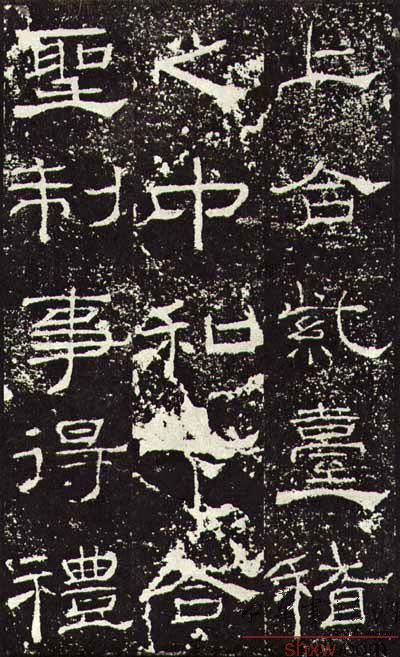 上合紫臺稽
之中和下合
聖制事得禮
shxw.com